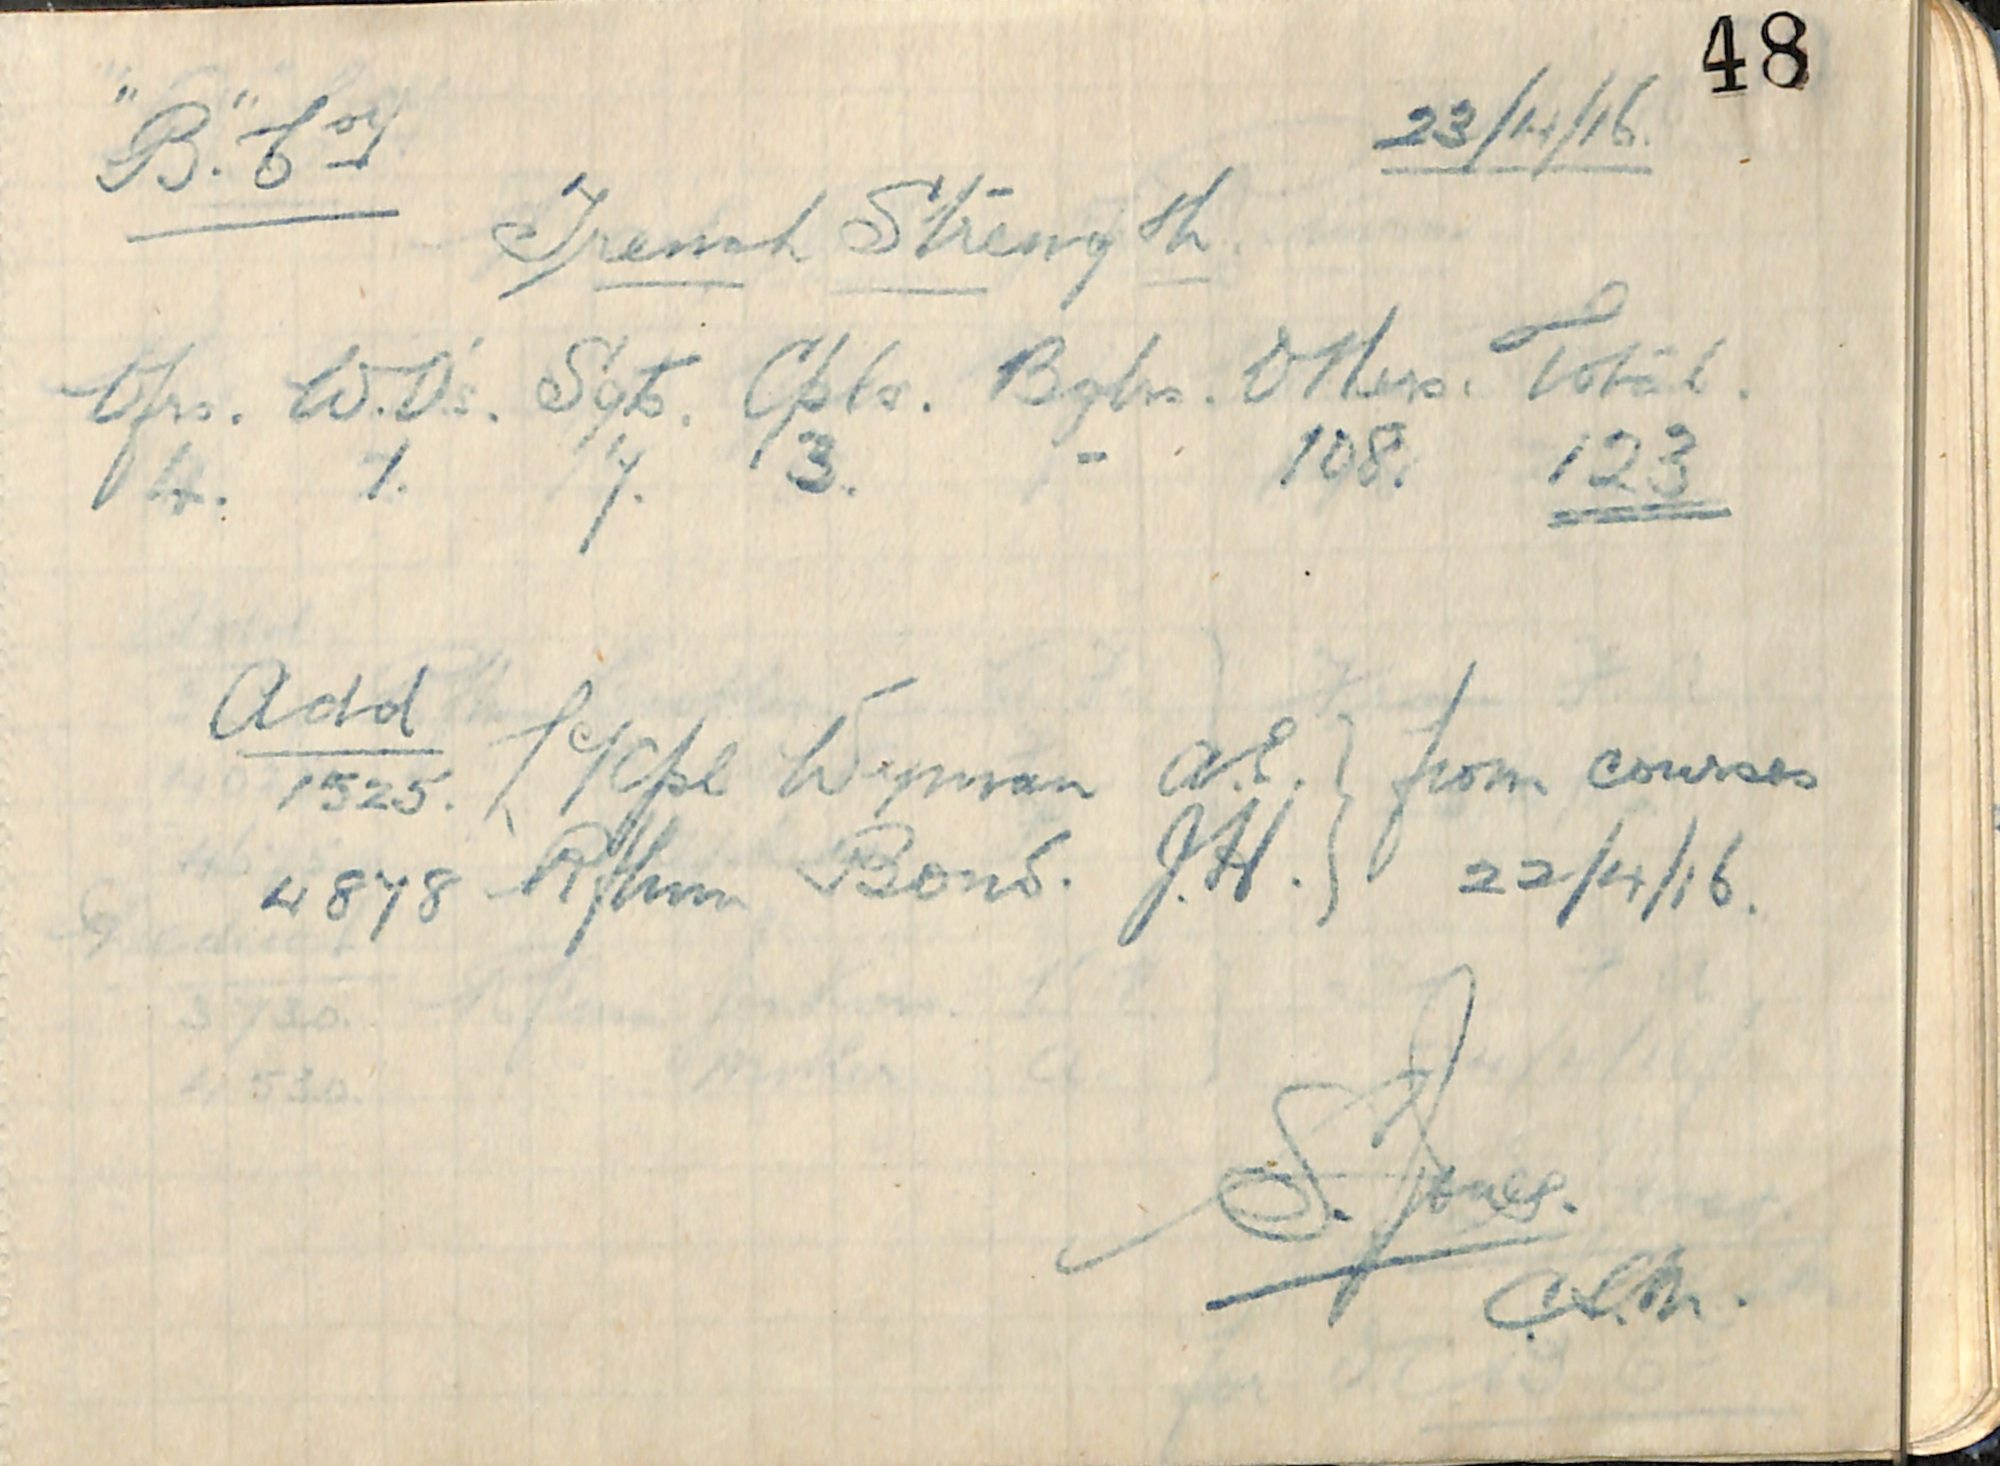 48
"B." Coy
23/4/16.
Trench Strength.
Ofrs. W.O's. Sgts. Cpls. Bglrs. Others. Total.
4. 1. 7. 3. - 108. 123
Add
1525. L/Cpl Wynman A.E. } from courses
4878 Rflmn Bond. J.H. } 22/4/16.
S. Jones.
C.S.M.